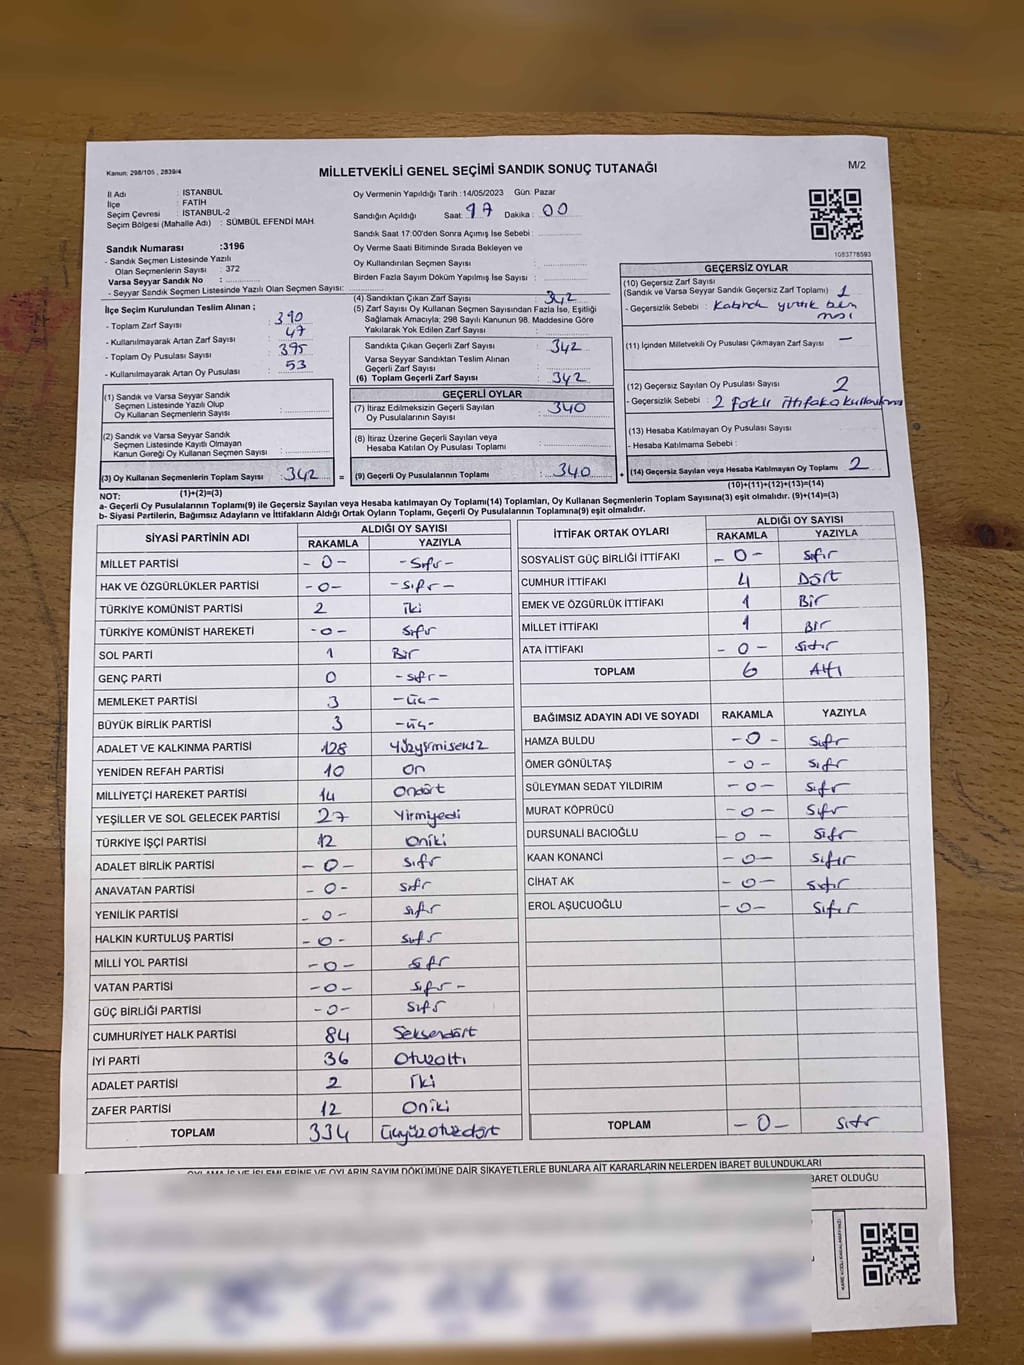 Kanun: 298/105 , 2839/4
MİLLETVEKİLİ GENEL SEÇİMİ SANDIK SONUÇ TUTANAĞI
M/2
İl Adı : İSTANBUL
İlçe : FATİH
Seçim Çevresi : İSTANBUL-2
Seçim Bölgesi (Mahalle Adı) : SÜMBÜL EFENDİ MAH.
Sandık Numarası :3196
- Sandık Seçmen Listesinde Yazılı
Olan Seçmenlerin Sayısı : 372
Varsa Seyyar Sandık No :
- Seyyar Sandık Seçmen Listesinde Yazılı Olan Seçmen Sayısı:
İlçe Seçim Kurulundan Teslim Alınan ;
- Toplam Zarf Sayısı : 390
- Kullanılmayarak Artan Zarf Sayısı : 47
- Toplam Oy Pusulası Sayısı : 395
- Kullanılmayarak Artan Oy Pusulası : 53
(1) Sandık ve Varsa Seyyar Sandık
Seçmen Listesinde Yazılı Olup
Oy Kullanan Seçmenlerin Sayısı :
(2) Sandık ve Varsa Seyyar Sandık
Seçmen Listesinde Kayıtlı Olmayan
Kanun Gereği Oy Kullanan Seçmen Sayısı :
(3) Oy Kullanan Seçmenlerin Toplam Sayısı : 342 =
(1)+(2)=(3)
Oy Vermenin Yapıldığı Tarih :14/05/2023 Gün: Pazar
Sandığın Açıldığı Saat: 17 Dakika : 00
Sandık Saat 17:00'den Sonra Açımış İse Sebebi :
Oy Verme Saati Bitiminde Sırada Bekleyen ve
Oy Kullandırılan Seçmen Sayısı :
Birden Fazla Sayım Döküm Yapılmış İse Sayısı :
(4) Sandıktan Çıkan Zarf Sayısı : 342
(5) Zarf Sayısı Oy Kullanan Seçmen Sayısından Fazla İse, Eşitliği
Sağlamak Amacıyla; 298 Sayılı Kanunun 98. Maddesine Göre
Yakılarak Yok Edilen Zarf Sayısı :
Sandıkta Çıkan Geçerli Zarf Sayısı : 342
Varsa Seyyar Sandıktan Teslim Alınan
Geçerli Zarf Sayısı :
(6) Toplam Geçerli Zarf Sayısı : 342
GEÇERLİ OYLAR
(7) İtiraz Edilmeksizin Geçerli Sayılan
Oy Pusulalarının Sayısı : 340
(8) İtiraz Üzerine Geçerli Sayılan veya
Hesaba Katılan Oy Pusulası Toplamı :
(9) Geçerli Oy Pusulalarının Toplamı : 340 +
1083778593
GEÇERSİZ OYLAR
(10) Geçersiz Zarf Sayısı
(Sandık ve Varsa Seyyar Sandık Geçersiz Zarf Toplamı) : 1
- Geçersizlik Sebebi :
(11) İçinden Milletvekili Oy Pusulası Çıkmayan Zarf Sayısı : –
(12) Geçersiz Sayılan Oy Pusulası Sayısı : 2
- Geçersizlik Sebebi : 2 Farklı ittifaka
(13) Hesaba Katılmayan Oy Pusulası Sayısı :
- Hesaba Katılmama Sebebi :
(14) Geçersiz Sayılan veya Hesaba Katılmayan Oy Toplamı : 2
(10)+(11)+(12)+(13)=(14)
NOT:
a- Geçerli Oy Pusulalarının Toplamı(9) ile Geçersiz Sayılan veya Hesaba katılmayan Oy Toplamı(14) Toplamları, Oy Kullanan Seçmenlerin Toplam Sayısına(3) eşit olmalıdır. (9)+(14)=(3)
b- Siyasi Partilerin, Bağımsız Adayların ve İttifakların Aldığı Ortak Oyların Toplamı, Geçerli Oy Pusulalarının Toplamına(9) eşit olmalıdır.
SİYASİ PARTİNİN ADI ALDIĞI OY SAYISI
RAKAMLA YAZIYLA
MİLLET PARTİSİ - 0 - - Sıfır -
HAK VE ÖZGÜRLÜKLER PARTİSİ - 0 - - Sıfır -
TÜRKİYE KOMÜNİST PARTİSİ 2 iki
TÜRKİYE KOMÜNİST HAREKETİ - 0 - Sıfır
SOL PARTİ 1 Bir
GENÇ PARTİ 0 - Sıfır -
MEMLEKET PARTİSİ 3 - üç -
BÜYÜK BİRLİK PARTİSİ 3 - üç -
ADALET VE KALKINMA PARTİSİ 128 Yüzyirmisekiz
YENİDEN REFAH PARTİSİ 10 On
MİLLİYETÇİ HAREKET PARTİSİ 14 Ondört
YEŞİLLER VE SOL GELECEK PARTİSİ 27 Yirmiyedi
TÜRKİYE İŞÇİ PARTİSİ 12 Oniki
ADALET BİRLİK PARTİSİ - 0 - Sıfır
ANAVATAN PARTİSİ - 0 - Sıfır
YENİLİK PARTİSİ - 0 - Sıfır
HALKIN KURTULUŞ PARTİSİ - 0 - Sıfır
MİLLİ YOL PARTİSİ - 0 - Sıfır
VATAN PARTİSİ - 0 - Sıfır -
GÜÇ BİRLİĞİ PARTİSİ - 0 - Sıfır
CUMHURİYET HALK PARTİSİ 84 Seksendört
İYİ PARTİ 36 Otuzaltı
ADALET PARTİSİ 2 İki
ZAFER PARTİSİ 12 Oniki
TOPLAM 334 Üçyüzotuzdört
İTTİFAK ORTAK OYLARI ALDIĞI OY SAYISI
RAKAMLA YAZIYLA
SOSYALİST GÜÇ BİRLİĞİ İTTİFAKI - 0 - Sıfır
CUMHUR İTTİFAKI 4 Dört
EMEK VE ÖZGÜRLÜK İTTİFAKI 1 Bir
MİLLET İTTİFAKI 1 Bir
ATA İTTİFAKI - 0 - Sıfır
TOPLAM 6 Altı
BAĞIMSIZ ADAYIN ADI VE SOYADI RAKAMLA YAZIYLA
HAMZA BULDU - 0 - Sıfır
ÖMER GÖNÜLTAŞ - 0 - Sıfır
SÜLEYMAN SEDAT YILDIRIM - 0 - Sıfır
MURAT KÖPRÜCÜ - 0 - Sıfır
DURSUNALİ BACIOĞLU - 0 - Sıfır
KAAN KONANCİ - 0 - Sıfır
CİHAT AK - 0 - Sıfır
EROL AŞUCUOĞLU - 0 - Sıfır
TOPLAM - 0 - Sıfır
OYLAMA İŞ VE İŞLEMLERİNE VE OYLARIN SAYIM DÖKÜMÜNE DAİR ŞİKAYETLERLE BUNLARA AİT KARARLARIN NELERDEN İBARET BULUNDUKLARI
BARET OLDUĞU